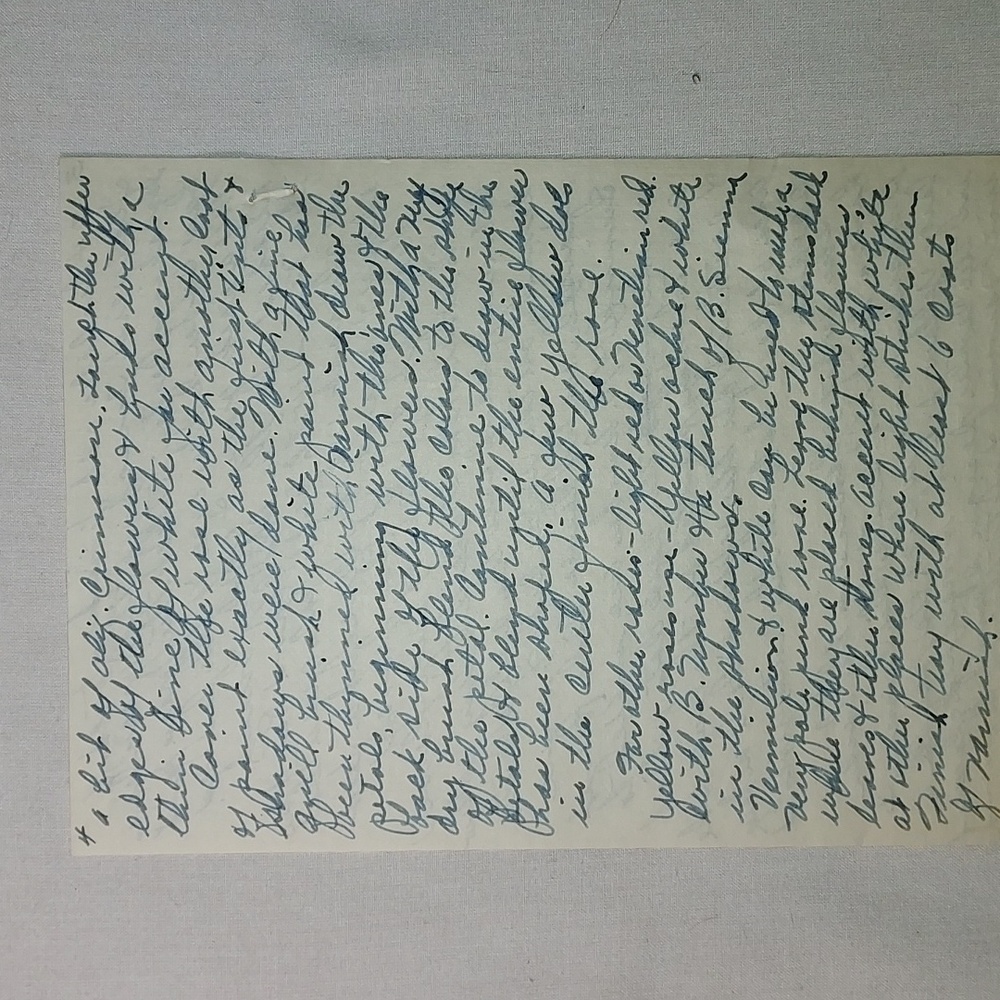 4
a bit of aliz. Crimson. Tough the upper
edge of the flowing & buds with a
thin line of white for accent.
Cover the rose with another coat
of paint exactly as the first tints &
shadows were done. With a fine
quill brush & white paint that has
been thinned with varnish draw the
petals, beginning with the ones of the
back side of the flowers. With a very
dry brush blend the colors to the shape
of the petal. Continue to draw in the
petals & blend until the entire flower
has been shaped. a few yellow dots
in the center finish the rose.
For the reds - light red or Venetian red.
yellow roses use - yellow ochre & white
with B. Umber & a touch of B. Sienna
in the shadows.
Vermilion & white can be used to make a
very pale pink rose. Leave the stems dark
where they are placed behind flowers
leaves & other stems. accent with white
at other places where light strikes them
Finish tray with at least 6 coats
of Varnish.